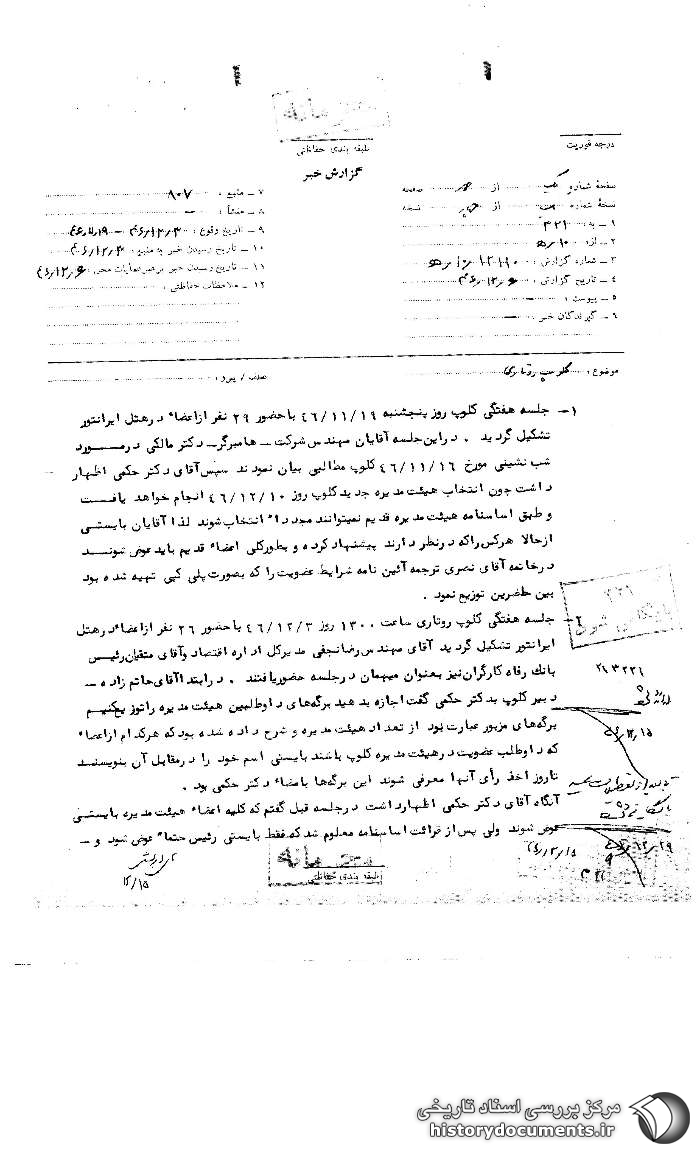 محرمانه
طبقه بندی حفاظتی
گزارش خبر
درجه فوریت
صفحهٔ شماره یک از صفحه
نسخهٔ شماره از نسخه
۱ ـ به : ۳۲۱
۲ ـ از : ۱۰ ه
۳ ـ شماره گزارش :
۴ ـ تاریخ گزارش : ۴۶/۱۲/۶
۵ ـ پیوست : ـ
۶ ـ گیرندگان خبر : ـ
۷ ـ منبع : ۸۰۷
۸ ـ منشأ : ـ
۹ ـ تاریخ وقوع : ۴۶/۱۲/۳ ـ ۴۶/۱۱/۱۹
۱۰ ـ تاریخ رسیدن خبر به منبع : ۴۶/۱۲/۳
۱۱ ـ تاریخ رسیدن خبر برهبر عملیات محل : ۴۶/۱۲/۶
۱۲ ـ ملاحظات حفاظتی :
موضوع : کلوپ روتاری
عطف / پیرو :
۱ـ جلسه هفتگی کلوپ روز پنجشنبه ۴۶/۱۱/۱۹ با حضور ۲۹ نفر از اعضاء در هتل ایرانتور
تشکیل گردید . در این جلسه آقایان مهندس شرکت ـ هامبرگر ـ دکتر مالکی در مورد
شب نشینی مورخ ۴۶/۱۱/۱۶ کلوپ مطالبی بیان نمودند سپس آقای دکتر حکمی اظهار
داشت چون انتخاب هیئت مدیره جدید کلوپ روز ۴۶/۱۲/۱۰ انجام خواهد یافت
و طبق اساسنامه هیئت مدیره قدیم نمیتوانند مجدداً انتخاب شوند لذا آقایان بایستی
از حالا هرکس را که در نظر دارند پیشنهاد کرده و بطور کلی اعضاء قدیم باید عوض شوند
در خاتمه آقای نصری ترجمه آئین نامه شرایط عضویت را که بصورت پلی کپی تهیه شده بود
بین حاضرین توزیع نمود .
۲ـ جلسه هفتگی کلوپ روتاری ساعت ۱۳۰۰ روز ۴۶/۱۲/۳ با حضور ۲۶ نفر از اعضاء در هتل
ایرانتور تشکیل گردید آقای مهندس رضا نجفی مدیرکل اداره اقتصاد و آقای متقیان رئیس
بانک رفاه کارگران نیز بعنوان میهمان در جلسه حضور یافتند . در ابتدا آقای حاتم زاده ـ
دبیر کلوپ بدکتر حکمی گفت اجازه بدهید برگه‌های داوطلبین هیئت مدیره را توزیع کنیم
برگه‌های مزبور عبارت بود از تعداد هیئت مدیره و شرح داده شده بود که هرکدام از اعضاء
که داوطلب عضویت در هیئت مدیره کلوپ باشند بایستی اسم خود را در مقابل آن بنویسند
تا روز اخذ رأی آنها معرفی شوند این برگه‌ها بامضاء دکتر حکمی بود .
آنگاه آقای دکتر حکمی اظهار داشت در جلسه قبل گفتم که کلیه اعضاء هیئت مدیره بایستی
عوض شوند ولی پس از قرائت اساسنامه معلوم شد که فقط بایستی رئیس حتماً عوض شود و ـ
۳۲۱
بایگانی شود
۱۲/۱۵
محرمانه
طبقه بندی حفاظتی
۱۲/۱۵
۳۲۱
مرکز بررسی اسناد تاریخی
historydocuments.ir